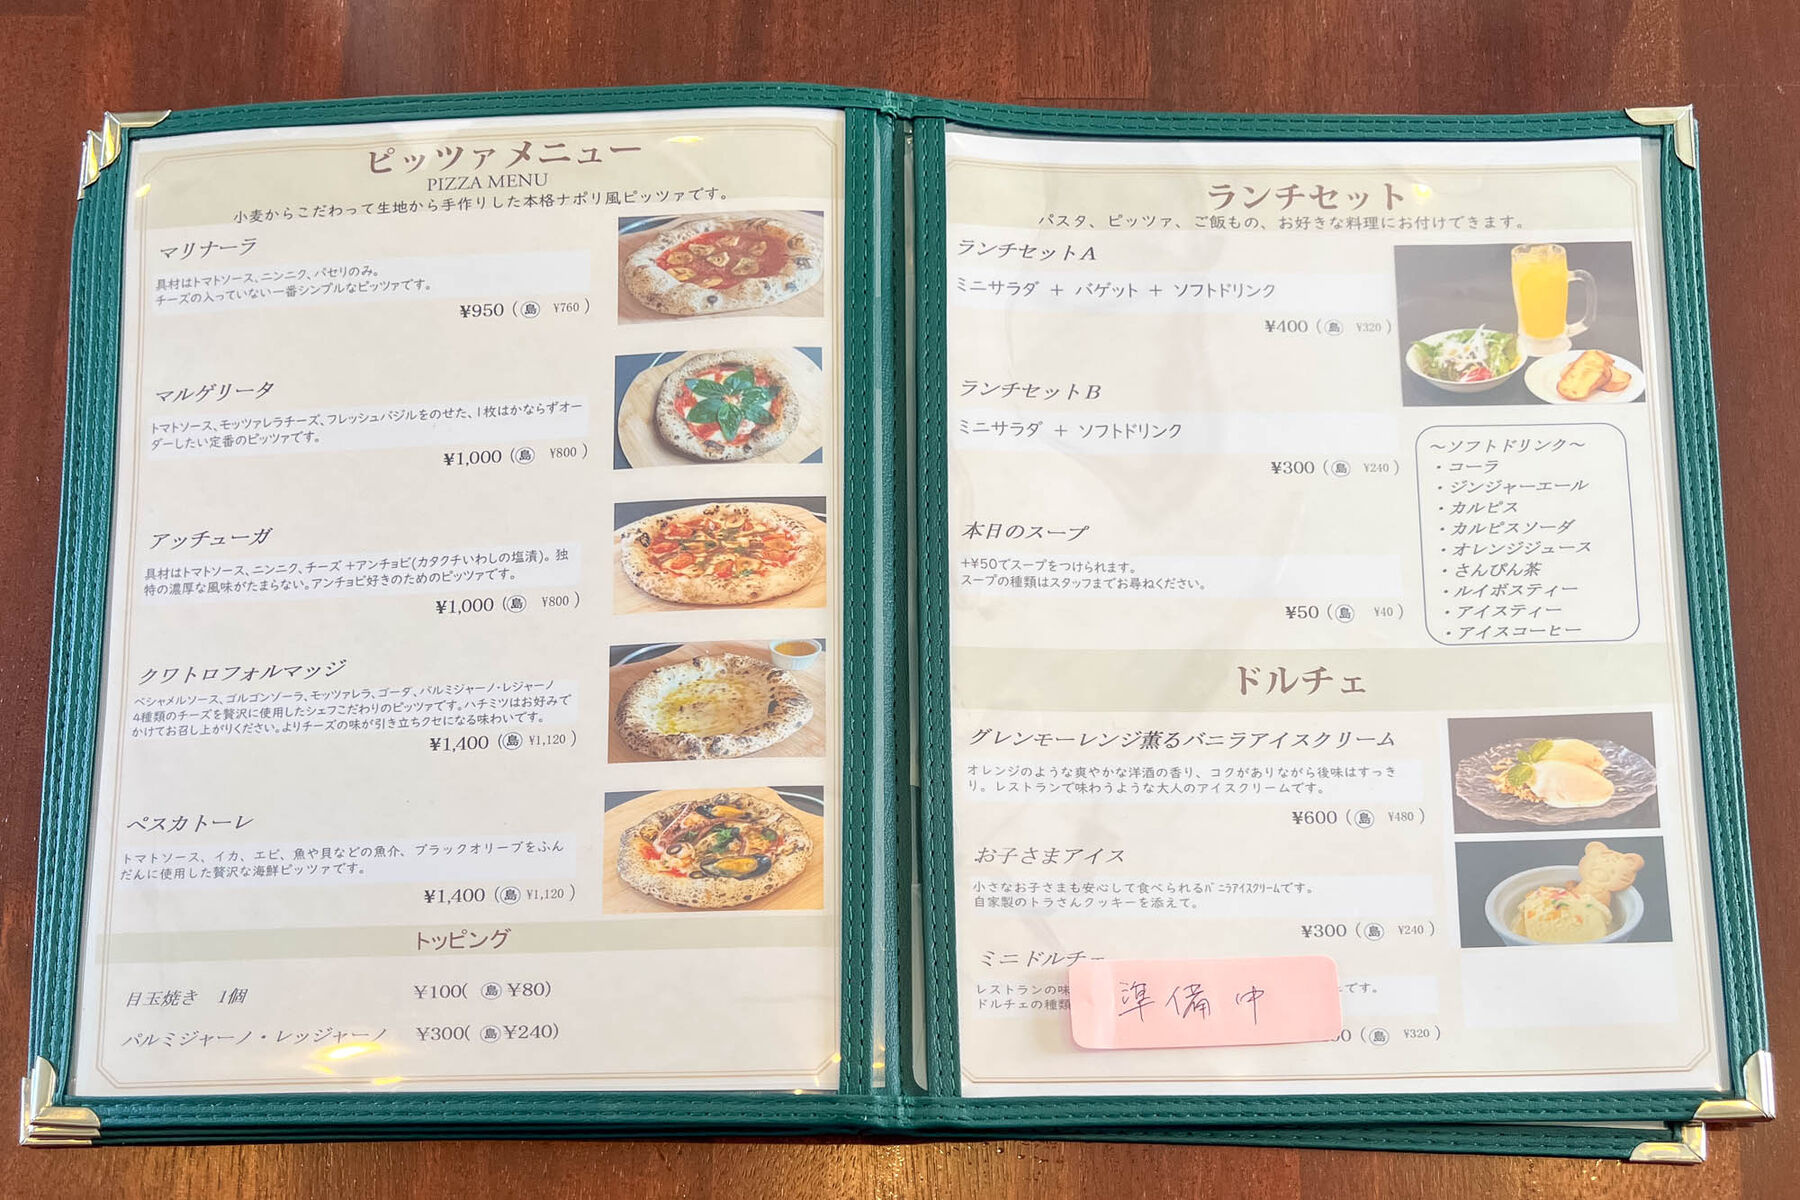 ピッツァメニュー
PIZZA MENU
小麦からこだわって生地から手作りした本格ナポリ風ピッツァです。
マリナーラ
具材はトマトソース、ニンニク、パセリのみ。
チーズの入っていない一番シンプルなピッツァです。
¥950 (島 ¥760 )
マルゲリータ
トマトソース、モッツァレラチーズ、フレッシュバジルをのせた、1枚はかならずオー
ダーしたい定番のピッツァです。
¥1,000 (島 ¥800 )
アッチューガ
具材はトマトソース、ニンニク、チーズ+アンチョビ(カタクチいわしの塩漬)。独
特の濃厚な風味がたまらない。アンチョビ好きのためのピッツァです。
¥1,000 (島 ¥800 )
クワトロフォルマッジ
ベシャメルソース、ゴルゴンゾーラ、モッツァレラ、ゴーダ、パルミジャーノ・レジャーノ
4種類のチーズを贅沢に使用したシェフこだわりのピッツァです。ハチミツはお好みで
かけてお召し上がりください。よりチーズの味が引き立ちクセになる味わいです。
¥1,400 (島 ¥1,120 )
ペスカトーレ
トマトソース、イカ、エビ、魚や貝などの魚介、ブラックオリーブをふん
だんに使用した贅沢な海鮮ピッツァです。
¥1,400 (島 ¥1,120 )
トッピング
目玉焼き 1個 ¥100( 島 ¥80)
パルミジャーノ・レッジャーノ ¥300( 島 ¥240)
ランチセット
パスタ、ピッツァ、ご飯もの、お好きな料理にお付けできます。
ランチセットA
ミニサラダ + バゲット + ソフトドリンク
¥400 (島 ¥320 )
ランチセットB
ミニサラダ + ソフトドリンク
¥300 (島 ¥240 )
本日のスープ
+¥50でスープをつけられます。
スープの種類はスタッフまでお尋ねください。
¥50 (島 ¥40 )
～ソフトドリンク～
・コーラ
・ジンジャーエール
・カルピス
・カルピスソーダ
・オレンジジュース
・さんぴん茶
・ルイボスティー
・アイスティー
・アイスコーヒー
ドルチェ
グレンモーレンジ薫るバニラアイスクリーム
オレンジのような爽やかな洋酒の香り、コクがありながら後味はすっき
り。レストランで味わうような大人のアイスクリームです。
¥600 (島 ¥480 )
お子さまアイス
小さなお子さまも安心して食べられるﾊﾞﾆﾗｱｲｽｸﾘｰﾑです。
自家製のトラさんクッキーを添えて。
¥300 (島 ¥240 )
ミニドルチェ
レストランの味
です。
ドルチェの種類
準備中
0 (島 ¥320 )